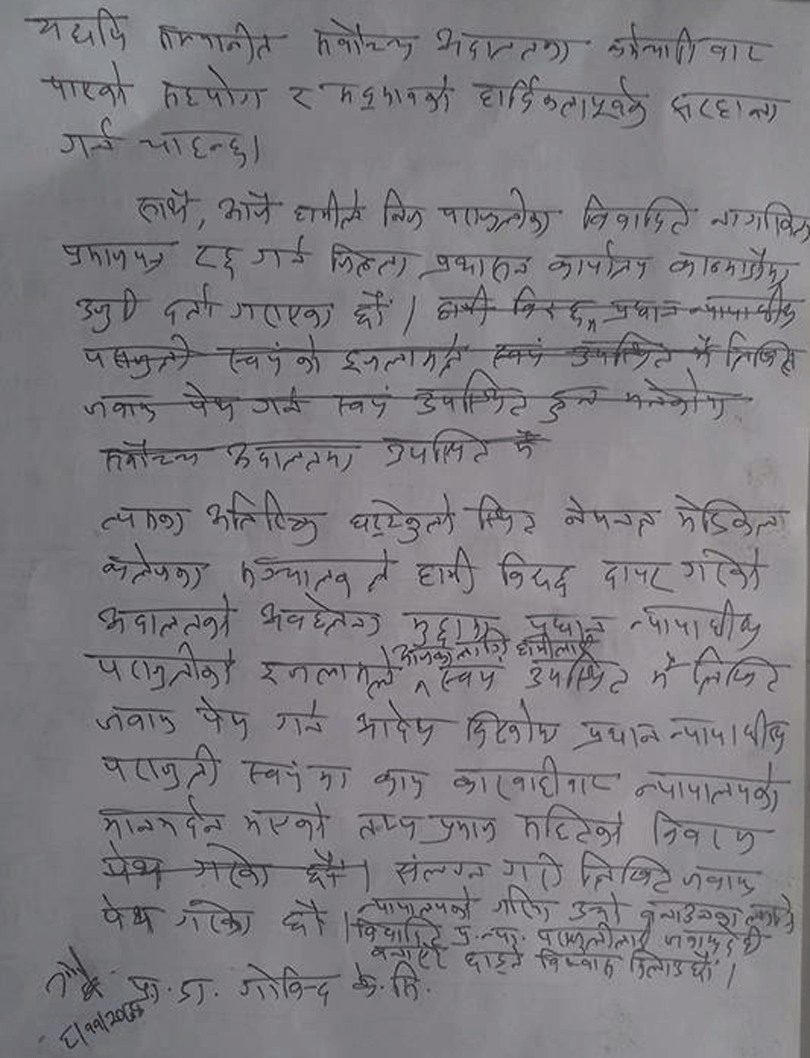 यद्यपि सम्मानीत सर्वोच्च अदालतका कर्मचारी बाट
पाएको सहयोग र सद्भावको हार्दिकतापूर्वक सराहना
गर्न चाहन्छु।
साथै, आजै हामीले निज पराजुलीका विवादित नागरिकता
प्रमाणपत्र रद्द गर्न जिल्ला प्रशासन कार्यालय काठमाडौंमा
उजुरी दर्ता गराएका छौं । हामी विरुद्ध प्रधान न्यायाधीश
पराजुली स्वयंको इजलासले स्वयं उपस्थित भै लिखित
जवाफ पेश गर्न स्वयं उपस्थित हुन
सर्वोच्च अदालतमा उपस्थित भै
त्यसका अतिरिक्त स्थित नेपाल मेडिकल
कलेजका सञ्चालक ले हामी विरुद्ध दायर गरेको
अदालतको अवहेलना मुद्दामा प्रधान न्यायाधीश
पराजुलीको इजलासले आजका लागि हामीलाई स्वयं उपस्थित भै लिखित
जवाफ पेश गर्न आदेश दिएकोमा प्रधान न्यायाधीश
पराजुली स्वयंका काम कारवाहीबाट न्यायालयको
मानमर्दन भएको तथ्य प्रमाण सहितको
पेश गरेका छौं । संलग्न गरी लिखित जवाफ
पेश गरेका छौं । न्यायालयको गरिमा उच्च बनाउनका लागि
विवादित प्र.न्या. पराजुलीलाई जवाफदेही
बनाएरै छाड्ने विश्वास दिलाउँछौं ।
प्रा. डा. गोविन्द के.सी.